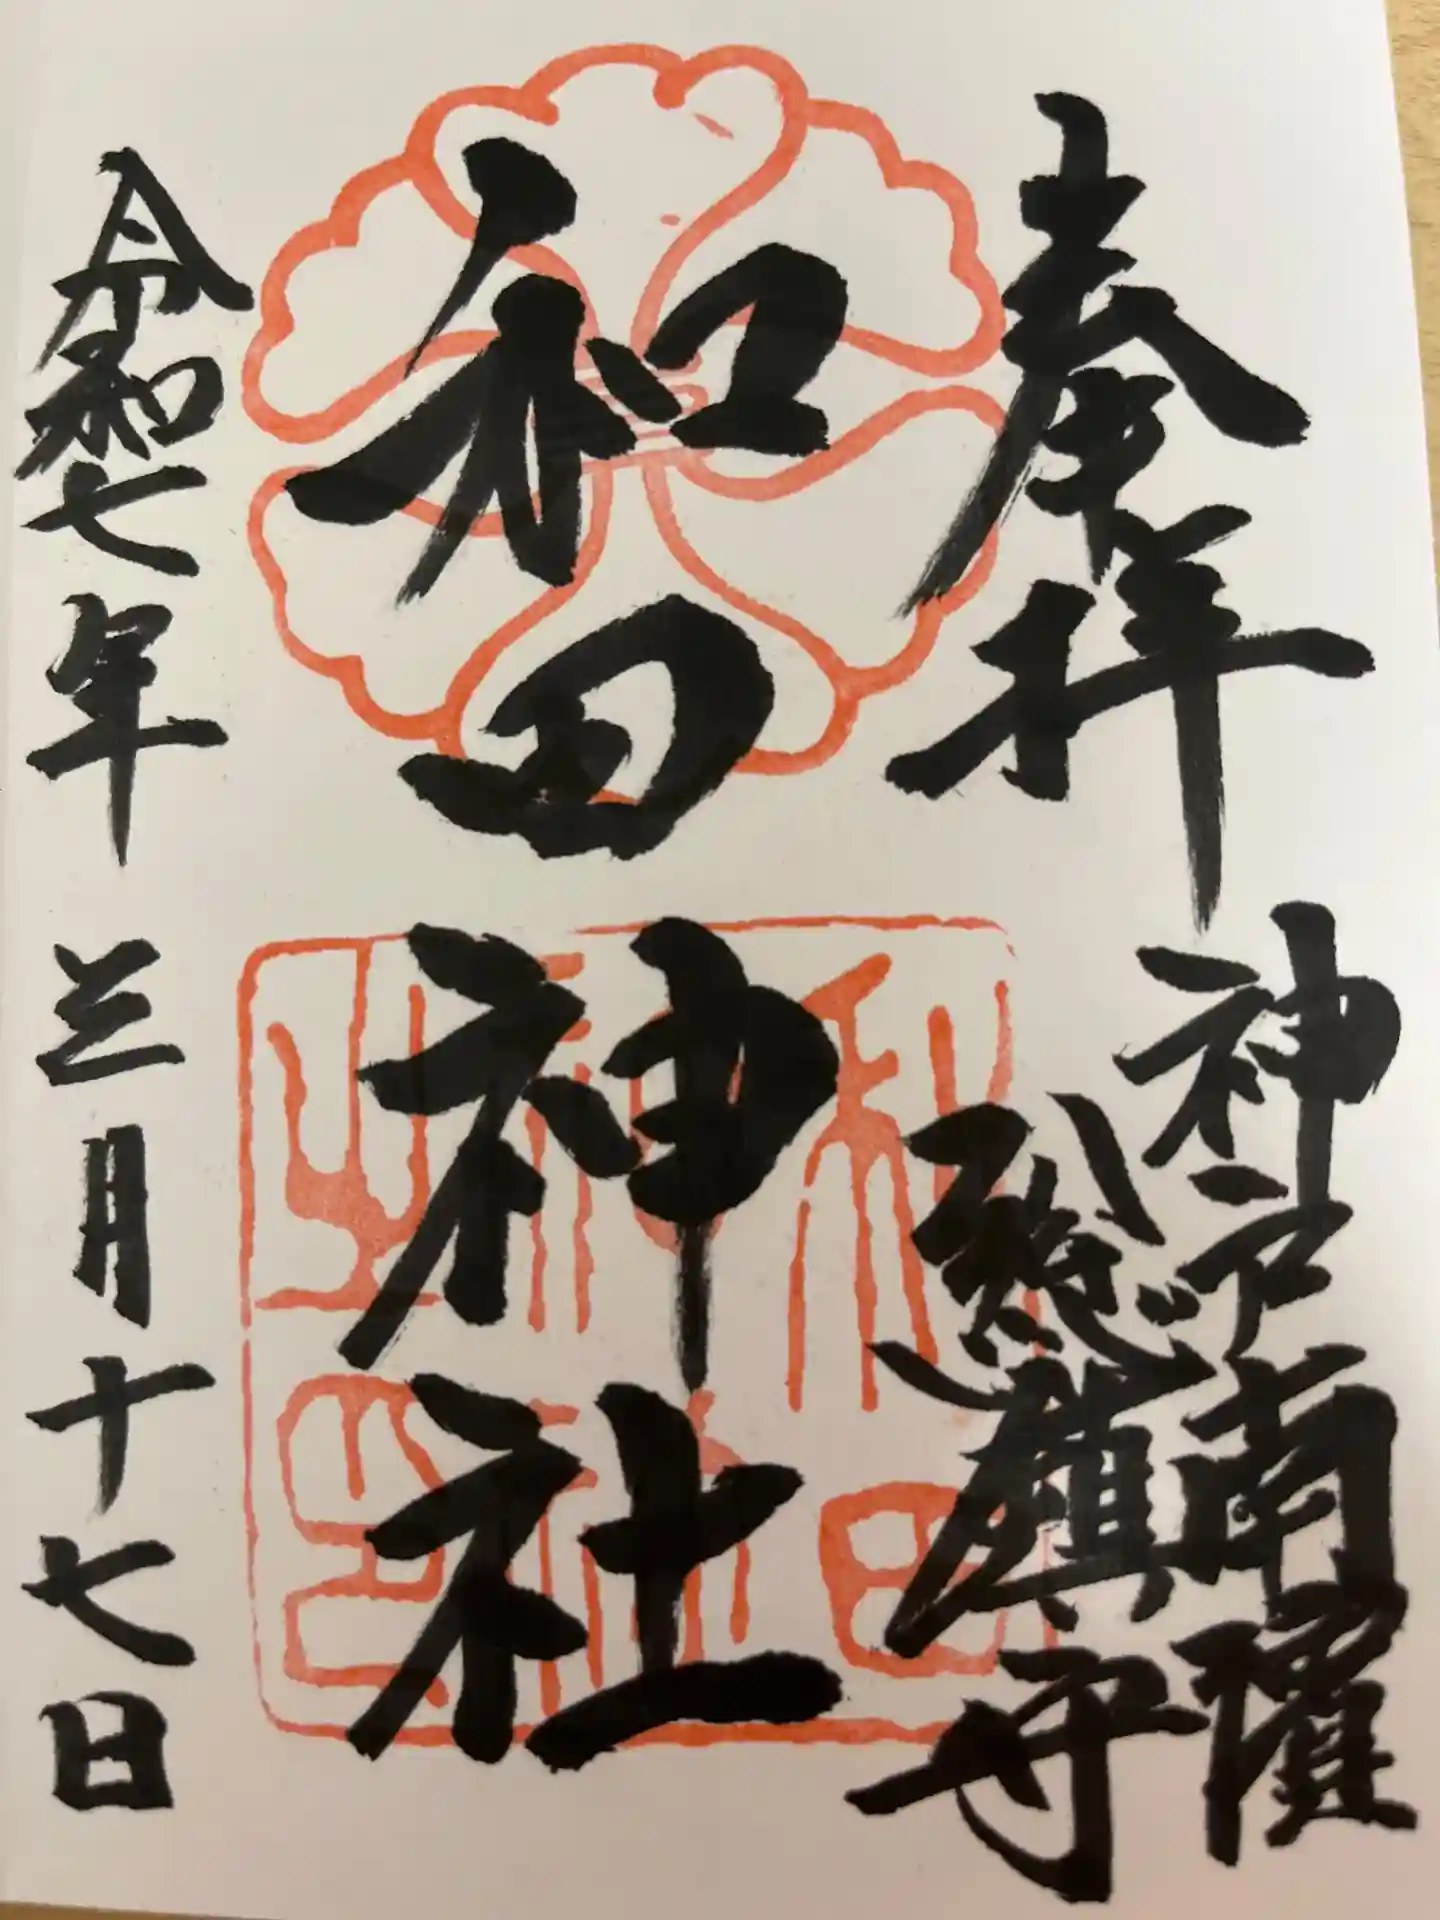 奉拝
神戸南
総鎮守
和田神社
令和七年三月十七日
和田
神社
之印